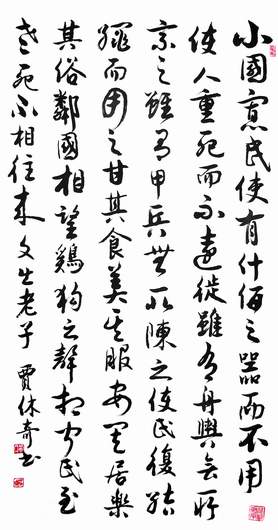 小國寡民使有什佰之器而不用
使人重死而不遠徙雖有舟輿無所
乘之雖有甲兵無所陳之使民復結
繩而用之甘其食美其服安其居樂
其俗鄰國相望雞狗之聲相聞民至
老死不相往來文出老子 賈休奇書